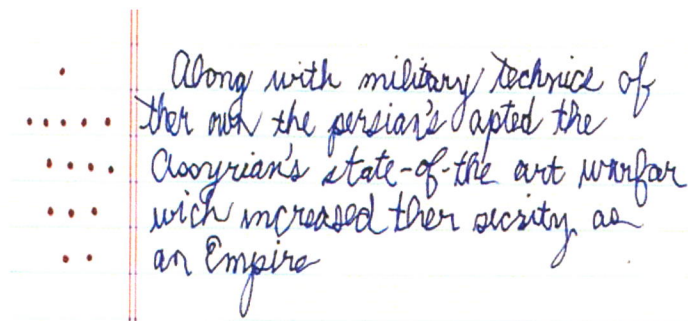 Along with military technics of
ther own the persian's apted the
Assyrian's state-of-the art warfar
wich increased ther secsity as
an Empire